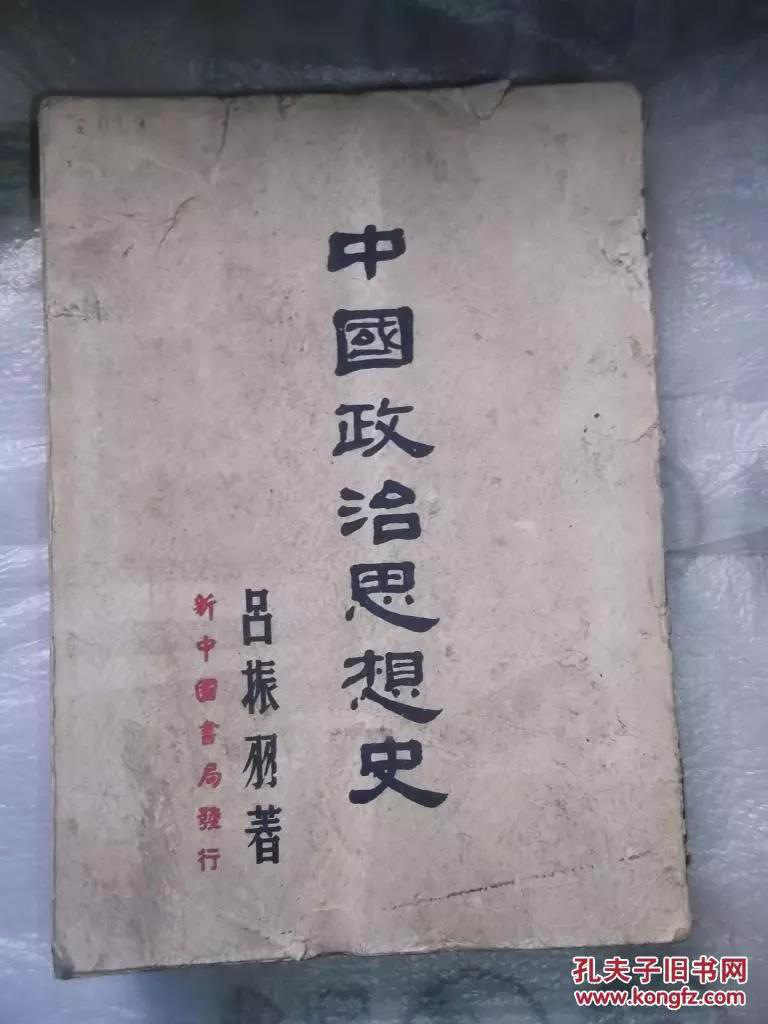 中國政治思想史
呂振羽著
新中國書局發行
孔夫子旧书网
www.kongfz.com